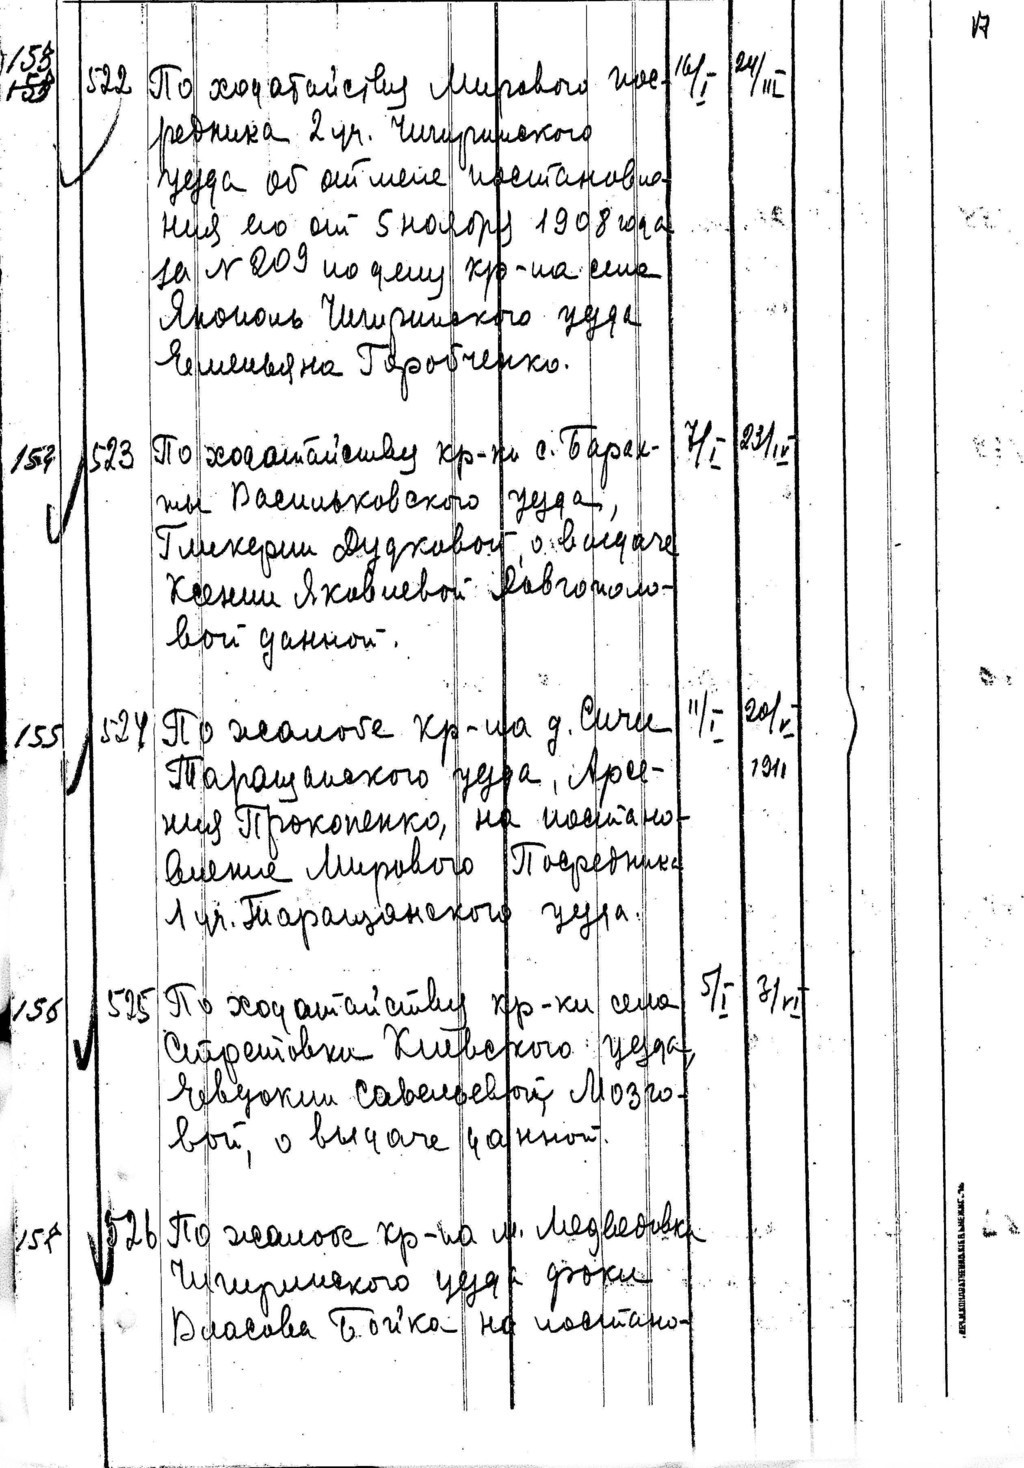 17
153 522 По ходатайству Мирового пос- 16/I 24/III
153
редника 2 уч. Чигиринского
уезда об отмене постановле-
ния его от 5 ноября 1908 года
за N 209 по делу кр-на села
Янополь Чигиринского уезда
Емельяна Горобченко.
154 523 По ходатайству кр-ки с. Барах- 7/I 23/IV
ты Васильковского уезда,
Гликерии Дудковой, о выдаче
Ксении Яковлевой Довгополо-
вой данной.
155 524 По жалобе кр-на д. Сичи 11/I 20/V
1911
Таращанского уезда, Арсе-
ния Прокопенко, на постано-
вление Мирового Посредника
1 уч. Таращанского уезда.
156 525 По ходатайству кр-ки села 5/I 3/VI
Стретовки Киевского уезда,
Евдокии Савельевой Мозго-
вой, о выдаче данной.
157 526 По жалобе кр-на м. Медведовки
Чигиринского уезда Фоки
Власова Бойка на постано-